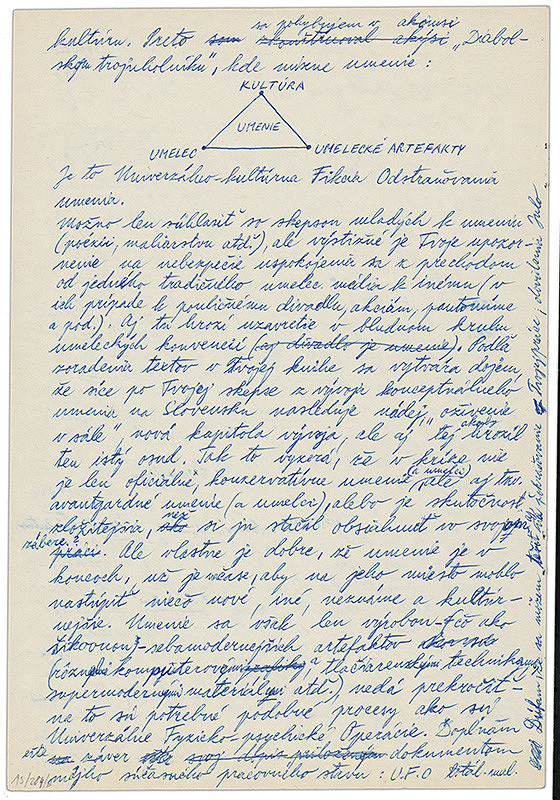 sa pohybujem v akomsi
kultúru. Preto som skonštruoval akýsi „Diabol-
skom trojuholníku", kde mizne umenie :
KULTÚRA
UMENIE
UMELEC UMELECKÉ ARTEFAKTY
Je to Univerzálno-kultúrna Fikcia Odstraňovania
umenia.
Možno len súhlasiť so skepsou mladých k umeniu
(poézii, maliarstvu atď.), ale výstižné je Tvoje upozor-
nenie na nebezpečie uspokojenia sa z prechodom
od jedného tradičného umelec. média k inému (v
ich prípade k pouličnému divadlu, akciám, pantomíme
a pod.). Aj tu hrozí uzavretie v bludnom kruhu
umeleckých konvencií (aj divadlo je umenie). Podľa
zoradenia textov v Tvojej knihe sa vytvára dojem,
že síce po Tvojej skepse z vývoja konceptuálneho
umenia na Slovensku nasleduje nádej, „oživenie
v sále", nová kapitola vývoja, ale aj tej akoby hrozil
ten istý osud. Tak to vyzerá, že v kríze nie
je len oficiálne, konzervatívne umenie (a umelci), ale aj tzv.
avantgardné umenie (a umelci), alebo je skutočnosť
zložitejšia, než si ju stačil obsiahnuť v svojom
zábere? práci. Ale vlastne je dobre, že umenie je v
koncoch, už je načase, aby na jeho miesto mohlo
nastúpiť niečo nové, iné, neznáme a kultúr-
nejšie. Umenie sa však len výrobou
sebamodernejších artefaktov
(rôznymi komputerovými grafiky, tlačiarenskými technikami,
supermodernými materiálmi atď.) nedá prekročiť -
na to sú potrebné podobné procesy ako sú
Univerzálne Fyzicko-psychické Operácie. Dopĺňam
ešte na záver svoj dopis priloženým dokumentom
môjho súčasného pracovného stavu : U.F.O
13/284/6